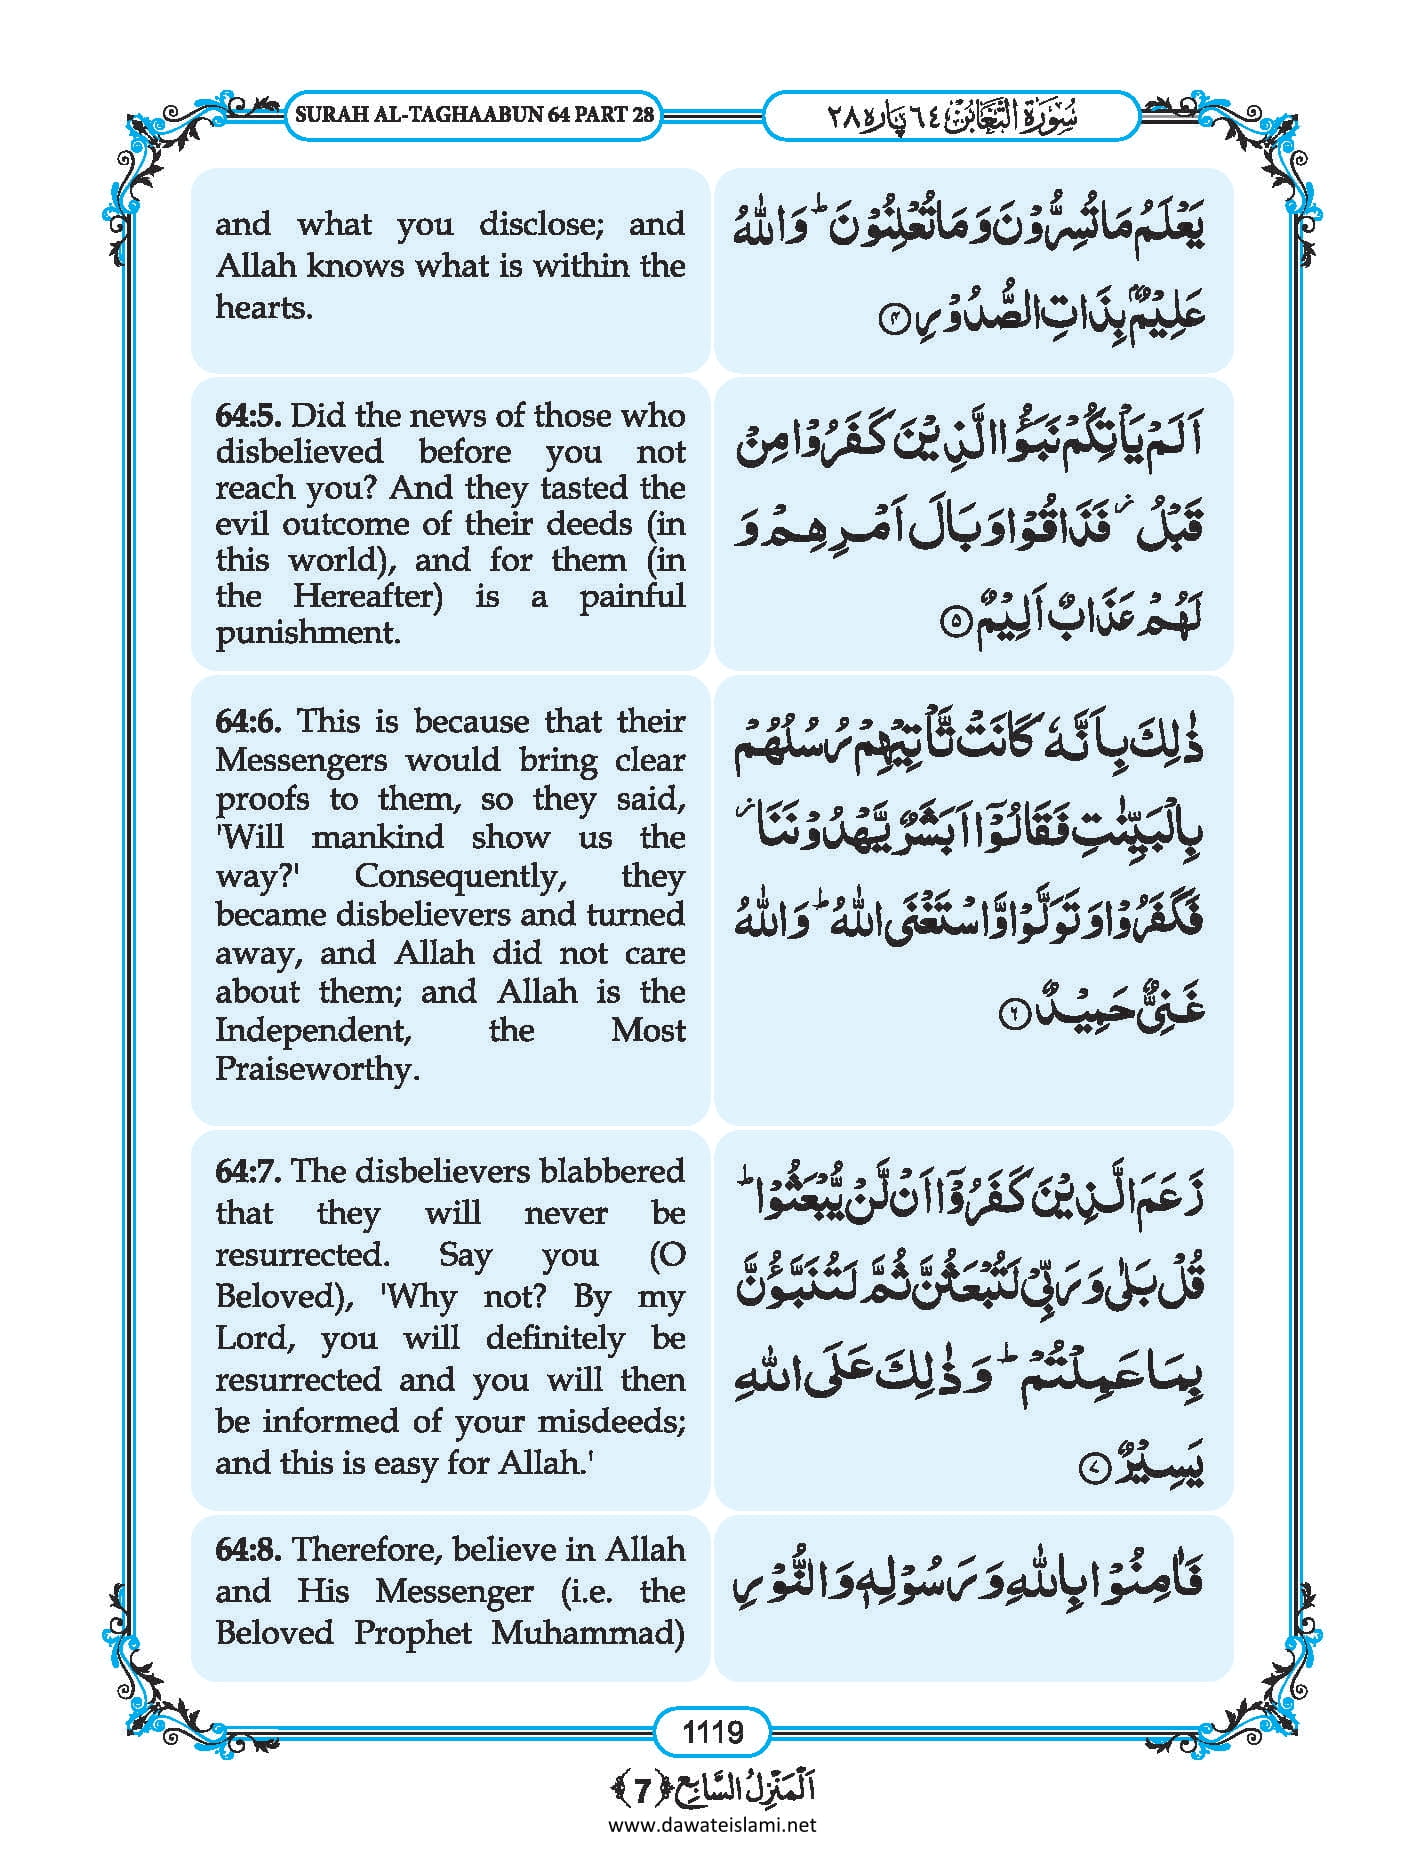 SURAH AL-TAGHAABUN 64 PART 28
سُوْرَةُ التَّغَابُن ٦٤ پاره ٢٨
and what you disclose; and
Allah knows what is within the
hearts.
يَعْلَمُ مَا تُسِرُّوْنَ وَ مَا تُعْلِنُوْنَ ؕ وَ اللّٰهُ
عَلِيْمٌۢ بِذَاتِ الصُّدُوْرِ ﴿۴﴾
64:5. Did the news of those who
disbelieved before you not
reach you? And they tasted the
evil outcome of their deeds (in
this world), and for them (in
the Hereafter) is a painful
punishment.
اَلَمْ يَاْتِكُمْ نَبَؤُا الَّذِيْنَ كَفَرُوْا مِنْ
قَبْلُ ؗ فَذَاقُوْا وَبَالَ اَمْرِهِمْ وَ
لَهُمْ عَذَابٌ اَلِيْمٌ ﴿۵﴾
64:6. This is because that their
Messengers would bring clear
proofs to them, so they said,
'Will mankind show us the
way?' Consequently, they
became disbelievers and turned
away, and Allah did not care
about them; and Allah is the
Independent, the Most
Praiseworthy.
ذٰلِكَ بِاَنَّهٗ كَانَتْ تَّاْتِيْهِمْ رُسُلُهُمْ
بِالْبَيِّنٰتِ فَقَالُوْۤا اَبَشَرٌ يَّهْدُوْنَنَا ؗ
فَكَفَرُوْا وَ تَوَلَّوْا وَّ اسْتَغْنَى اللّٰهُ ؕ وَ اللّٰهُ
غَنِيٌّ حَمِيْدٌ ﴿۶﴾
64:7. The disbelievers blabbered
that they will never be
resurrected. Say you (O
Beloved), 'Why not? By my
Lord, you will definitely be
resurrected and you will then
be informed of your misdeeds;
and this is easy for Allah.'
زَعَمَ الَّذِيْنَ كَفَرُوْۤا اَنْ لَّنْ يُّبْعَثُوْا ؕ
قُلْ بَلٰى وَ رَبِّيْ لَتُبْعَثُنَّ ثُمَّ لَتُنَبَّؤُنَّ
بِمَا عَمِلْتُمْ ؕ وَ ذٰلِكَ عَلَى اللّٰهِ
يَسِيْرٌ ﴿۷﴾
64:8. Therefore, believe in Allah
and His Messenger (i.e. the
Beloved Prophet Muhammad)
فَاٰمِنُوْا بِاللّٰهِ وَ رَسُوْلِهٖ وَ النُّوْرِ
1119
اَلْمَنْزِلُ السَّابِع ﴿7﴾
www.dawateislami.net